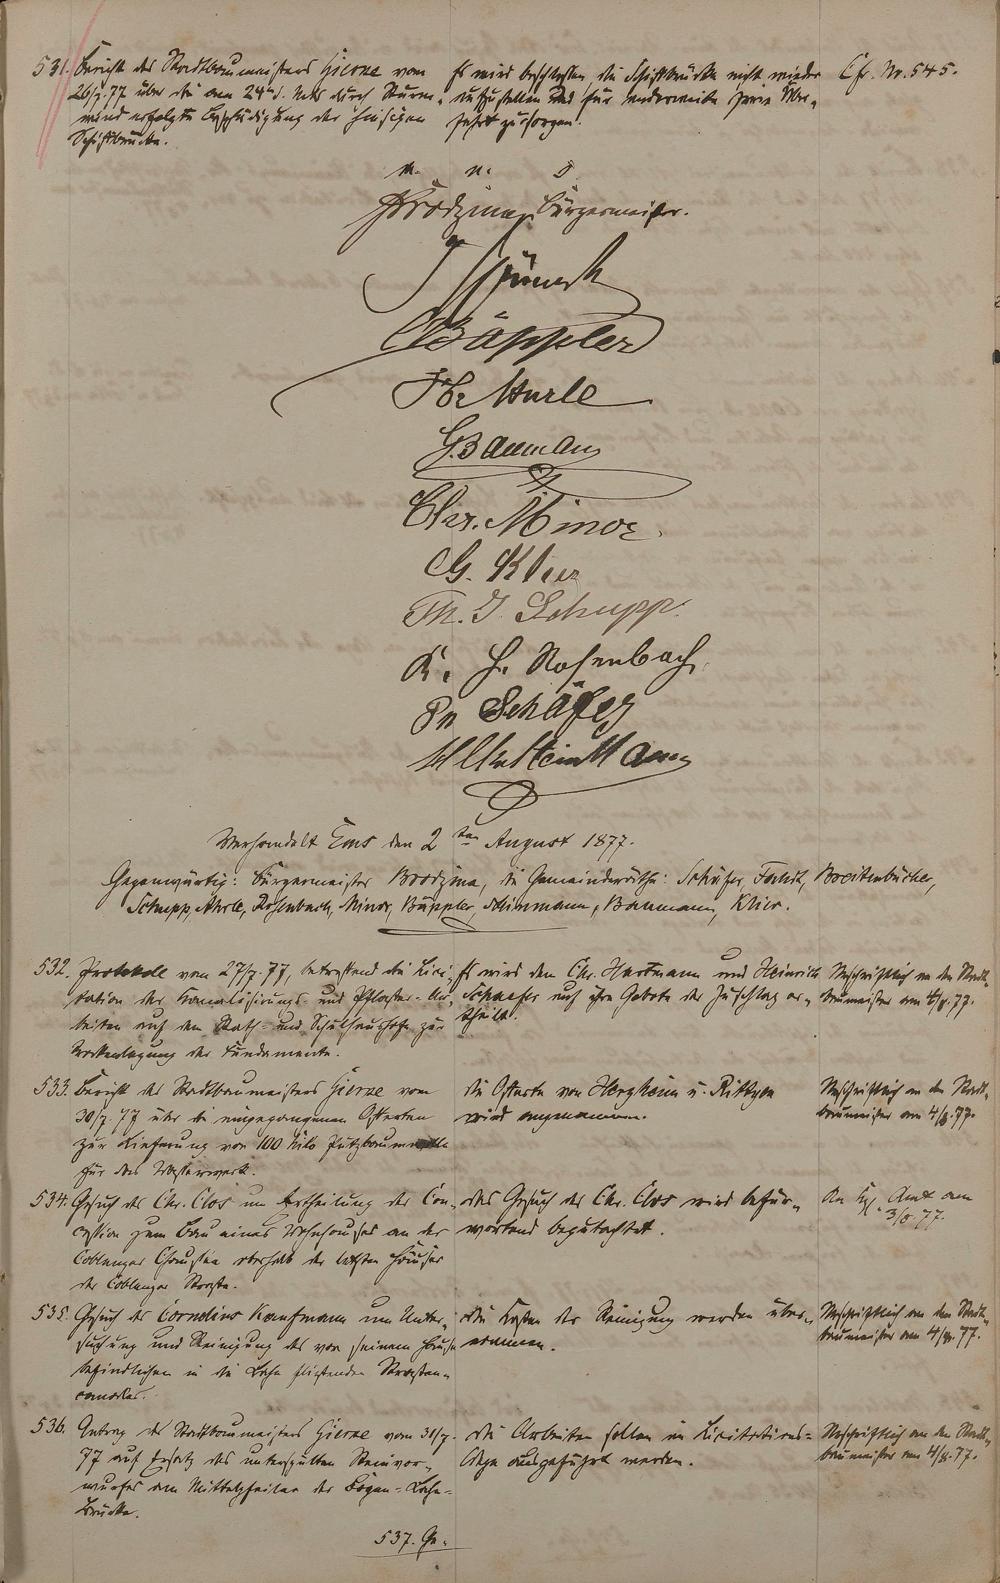 531. Bericht des Stadtbaumeisters Gierne vom
26/7. 77 über die am 24ten d. Mts durch Sturm-
wind erfolgte Beschädigung der hiesigen
Schiffbrücke.
Es wird beschlossen die Schiffbrücke nicht wieder
aufzustellen und für anderweite freie Ueber-
fahrt zu sorgen.
Cfr. Nr. 545.
Brodzina, Bürgermeister.
Bäppler
G. Baumann
Chr. Minor
G. Klier
Th. J. Schupp.
K. H. Rosenbach,
Schäfer
Verhandelt Ems den 2ten August 1877.
Gegenwärtig: Bürgermeister Brodzina, die Gemeinderäthe: Schäfer, Breitenbücher,
Schupp, Rosenbach, Minor, Bäppler, Baumann, Klier.
532. Protokoll vom 27/7. 77, betreffend die Lici-
tation der Kanalisirungs- und Pflaster-Ar-
beiten auf dem Rath- und Schulhaushofe zur
Trockenlegung der Fundamente.
Es wird dem Chr. Hartmann und Heinrich
Schaefer auf ihre Gebote der Zuschlag er-
theilt.
Abschriftlich an den Stadt-
baumeister am 4/8. 77.
533. Bericht des Stadtbaumeisters Gierne vom
30/7. 77 über die eingegangenen Offerten
zur Lieferung von 100 Kilo Putzbaumwolle
für das Wasserwerk.
die Offerte von
wird angenommen.
Abschriftlich an den Stadt-
baumeister am 4/8. 77.
534. Gesuch des Chr. Clos um Ertheilung der Con-
cession zum Bau eines Wohnhauses an der
Coblenzer Chaussee oberhalb der letzten Häuser
der Coblenzer Straße.
das Gesuch des Chr. Clos wird befür-
wortend begutachtet.
An Kgl. Amt am
3/8. 77.
535. Gesuch des Cornelius Kaufmann um Unter-
suchung und Reinigung des vor seinem Hause
befindlichen in die Lahn fließenden Straßen-
canales.
die Kosten der Reinigung werden über-
nommen.
Abschriftlich an den Stadt-
baumeister am 4/8. 77.
536. Antrag des Stadtbaumeisters Gierne vom 31/7.
77 auf Ersatz des unterspülten Steinvor-
wurfes am Mittelpfeiler der Bogen-Lahn-
brücke.
die Arbeiten sollen im Licitations-
Wege ausgeführt werden.
Abschriftlich an den Stadt-
baumeister am 4/8. 77.
537. Ge-